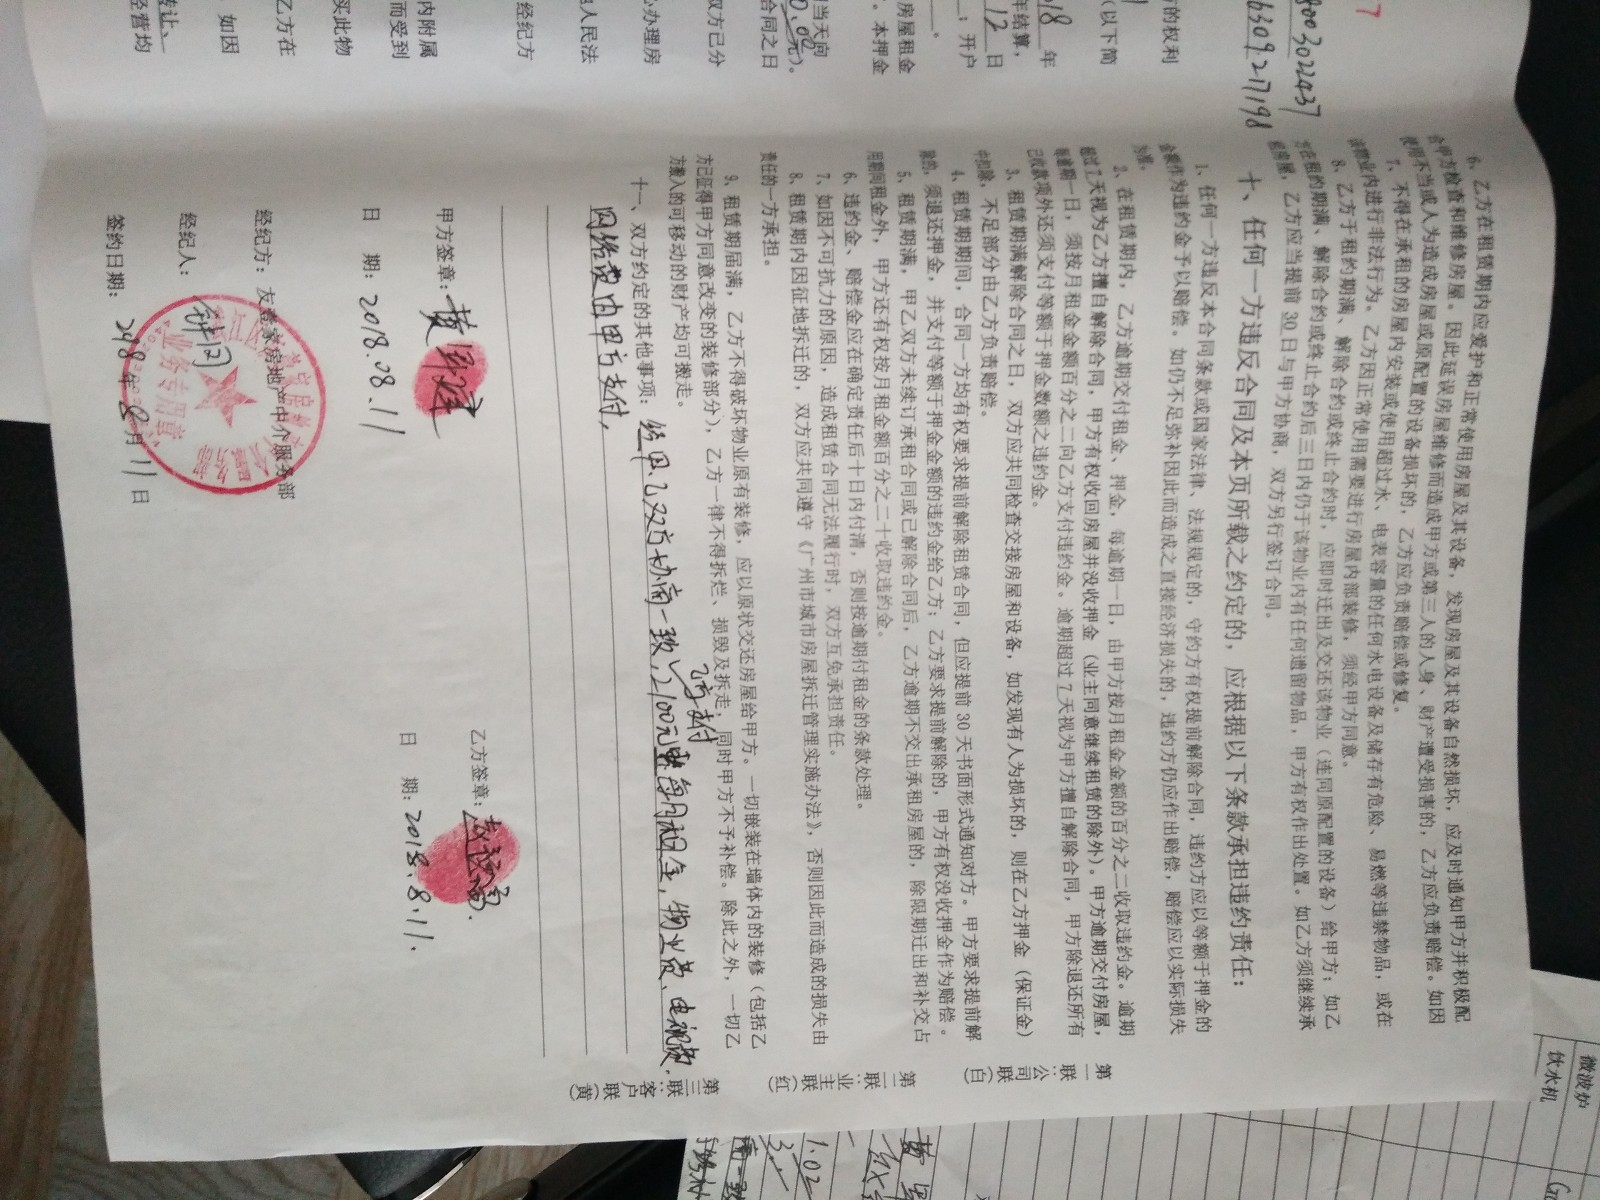 6、乙方在租赁期内应爱护和正常使用房屋及其设备，发现房屋及其设备自然损坏，应及时通知甲方并积极配
合甲方检查和维修房屋。因此延误房屋维修而造成甲方或第三人的人身、财产遭受损害的，乙方应负责赔偿。如因
使用不当或人为造成房屋或原配置的设备损坏的，乙方应负责赔偿或修复。
7、不得在承租的房屋内安装或使用超过水、电表容量的任何水电设备及储存有危险、易燃等违禁物品，或在
该物业内进行非法行为。乙方因正常使用需要进行房屋内部装修，须经甲方同意。
8、乙方于租约期满、解除合约或终止合约时，应即时迁出及交还该物业（连同原配置的设备）给甲方；如乙
方在租约期满、解除合约或终止合约后三日内仍于该物业内有任何遗留物品，甲方有权作出处置。如乙方须继续承
租房屋，乙方应当提前 30 日与甲方协商，双方另行签订合同。
十、任何一方违反合同及本页所载之约定的，应根据以下条款承担违约责任：
1、任何一方违反本合同条款或国家法律、法规规定的，守约方有权提前解除合同，违约方应以等额于押金的
金额作为违约金予以赔偿。如仍不足弥补因此而造成之直接经济损失的，违约方仍应作出赔偿，赔偿应以实际损失
为准。
2、在租赁期内，乙方逾期交付租金、押金，每逾期一日，由甲方按月租金金额的百分之二收取违约金。逾期
超过 7 天视为乙方擅自解除合同，甲方有权收回房屋并没收押金（业主同意继续租赁的除外）。甲方逾期交付房屋，
每逾期一日，须按月租金金额百分之二向乙方支付违约金。逾期超过 7 天视为甲方擅自解除合同，甲方除退还所有
已收款项外还须支付等额于押金数额之违约金。
3、租赁期满解除合同之日，双方应共同检查交接房屋和设备，如发现有人为损坏的，则在乙方押金（保证金）
中扣除，不足部分由乙方负责赔偿。
4、租赁期期间，合同一方均有权要求提前解除租赁合同，但应提前 30 天书面形式通知对方。甲方要求提前解
除的，须退还押金，并支付等额于押金金额的违约金给乙方；乙方要求提前解除的，甲方有权没收押金作为赔偿。
5、租赁期满，甲乙双方未续订承租合同或已解除合同后，乙方逾期不交出承租房屋的，除限期迁出和补交占
用期间租金外，甲方还有权按月租金额百分之二十收取违约金。
6、违约金、赔偿金应在确定责任后十日内付清，否则按逾期付租金的条款处理。
7、如因不可抗力的原因，造成租赁合同无法履行时，双方互免承担责任。
8、租赁期内因征地拆迁的，双方应共同遵守《广州市城市房屋拆迁管理实施办法》，否则因此而造成的损失由
责任的一方承担。
9、租赁期届满，乙方不得破坏物业原有装修，应以原状交还房屋给甲方。一切嵌装在墙体内的装修（包括乙
方已征得甲方同意改变的装修部分），乙方一律不得拆烂、损毁及拆走，同时甲方不予补偿。除此之外，一切乙
方搬入的可移动的财产均可搬走。
十一、双方约定的其他事项：经甲乙双方协商一致，2100元每月租金，物业费、电视费、
网络费由甲方支付，
甲方签章：
乙方签章：
日 期：2018.08.11
日 期：2018.8.11.
经纪方：友壹家房地产中介服务部
经纪人：
签约日期：2018年8月11日
业务专用章
第一联：公司联（白）
第二联：业主联（红）
第三联：客户联（黄）
的权利
（以下简
018 年
年结算，
12 日
；开户
房屋租金
。本押金
当天向
合同之日
双方已分
办理房
人民法
经纪方
内附属
而受到
买此物
乙方在
如因
转让、
经营均
微波炉
饮水机